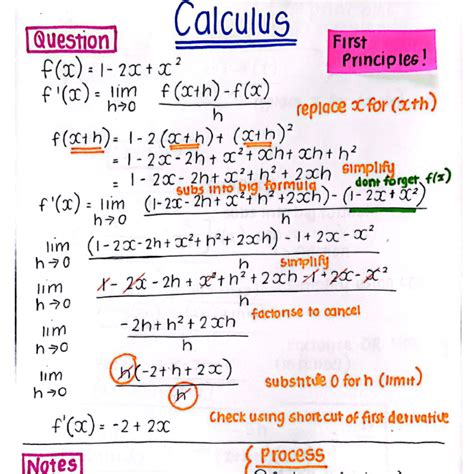 Calculus
Question
First Principles!
f(x) = 1 - 2x + x²
f'(x) = lim h→0 f(x+h) - f(x) / h
replace x for (x+h)
f(x+h) = 1 - 2(x+h) + (x+h)²
= 1 - 2x - 2h + x² + xh + xh + h²
= 1 - 2x - 2h + x² + h² + 2xh simplify
subs into big formula
dont forget f(x)
f'(x) = lim h→0 (1-2x-2h+x²+h²+2xh) - (1-2x+x²) / h
lim h→0 (1-2x-2h+x²+h²+2xh) - 1 + 2x - x² / h
simplify
lim h→0 1 - 2x - 2h + x² + h² + 2xh - 1 + 2x - x² / h
factorise to cancel
lim h→0 -2h + h² + 2xh / h
lim h→0 h(-2+h+2x) / h
substitute 0 for h (limit)
f'(x) = -2 + 2x
Check using shortcut of first derivative
Notes
Process